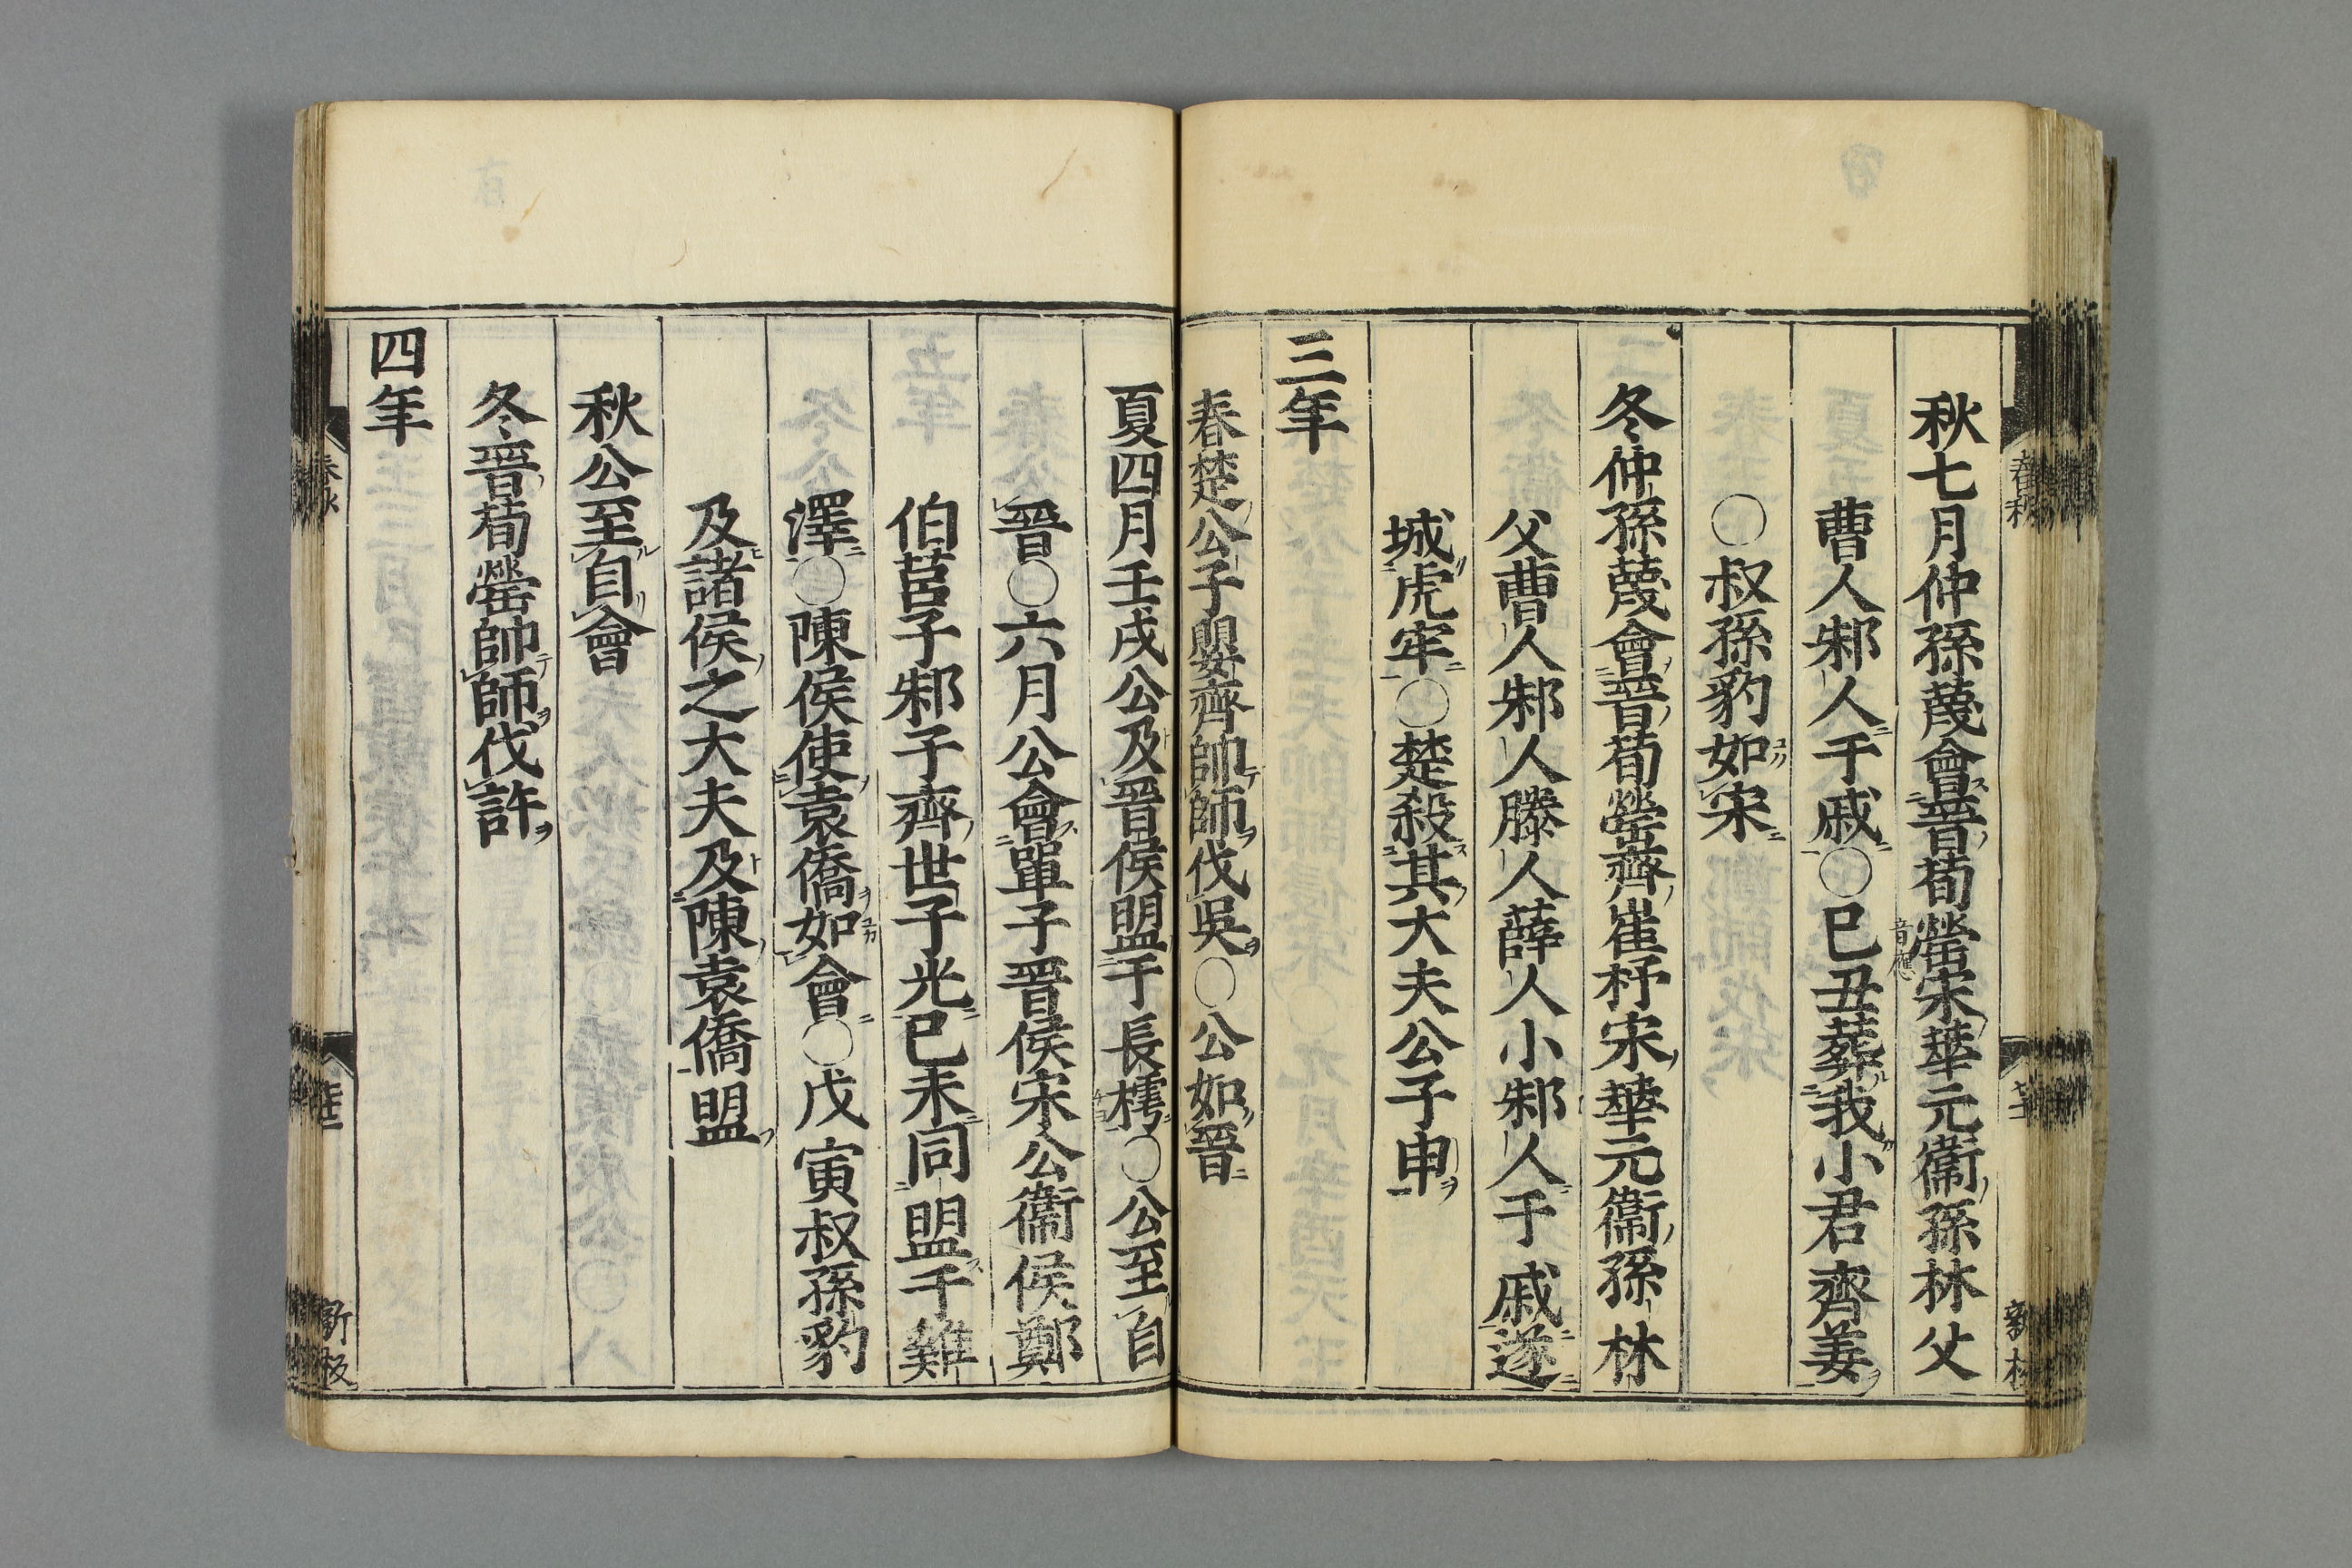 秋七月仲孫蔑會晉荀罃宋華元衞孫林父
音應
曹人邾人于戚○己丑葬我小君齊姜
○叔孫豹如宋
冬仲孫蔑會晉荀罃齊崔杼宋華元衞孫林
父曹人邾人滕人薛人小邾人于戚遂
城虎牢○楚殺其大夫公子申
三年
春楚公子嬰齊帥師伐吳○公如晉
夏四月壬戌公及晉侯盟于長樗○公至自
晉○六月公會單子晉侯宋公衞侯鄭
伯莒子邾子齊世子光己未同盟于雞
澤○陳侯使袁僑如會○戊寅叔孫豹
及諸侯之大夫及陳袁僑盟
秋公至自會
冬晉荀罃帥師伐許
四年
春秋
新板